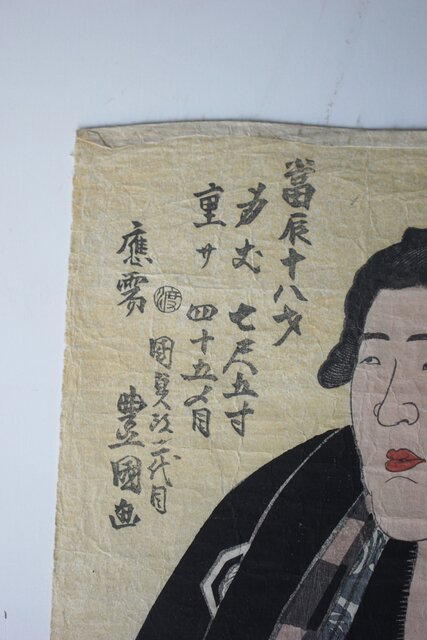 當辰十八才
身丈 七尺五寸
重サ 四十五〆目
渡
國貞改二代目
應需 豊國画